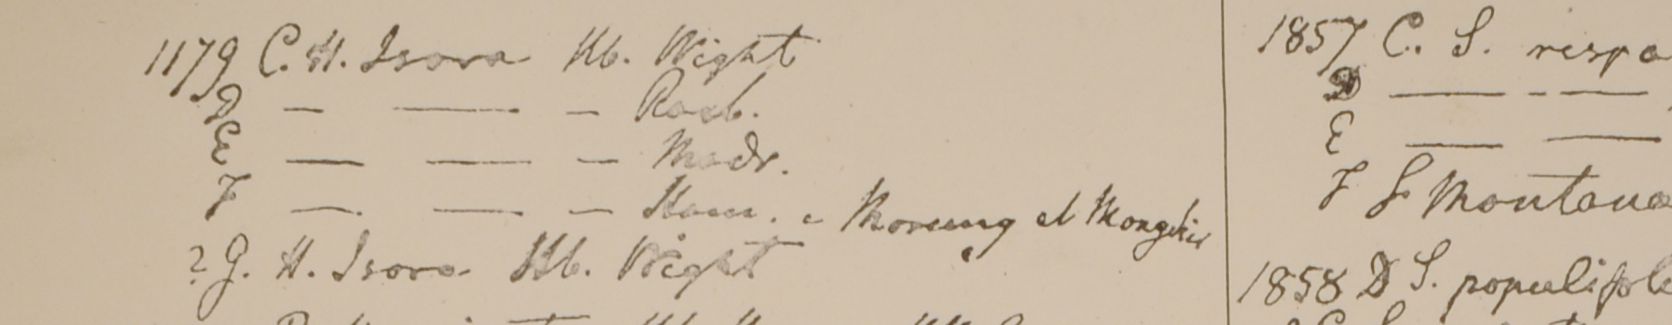 1179 C. H. Isora Hb. Wight
D — — — Roxb.
E — — — Madr.
F — — — Ham. e Morung et Monghir
? G. H. Isora Hb. Wight
1857 C. S.
D — - —
E — —
F S. Montana
1858 D S. populifol